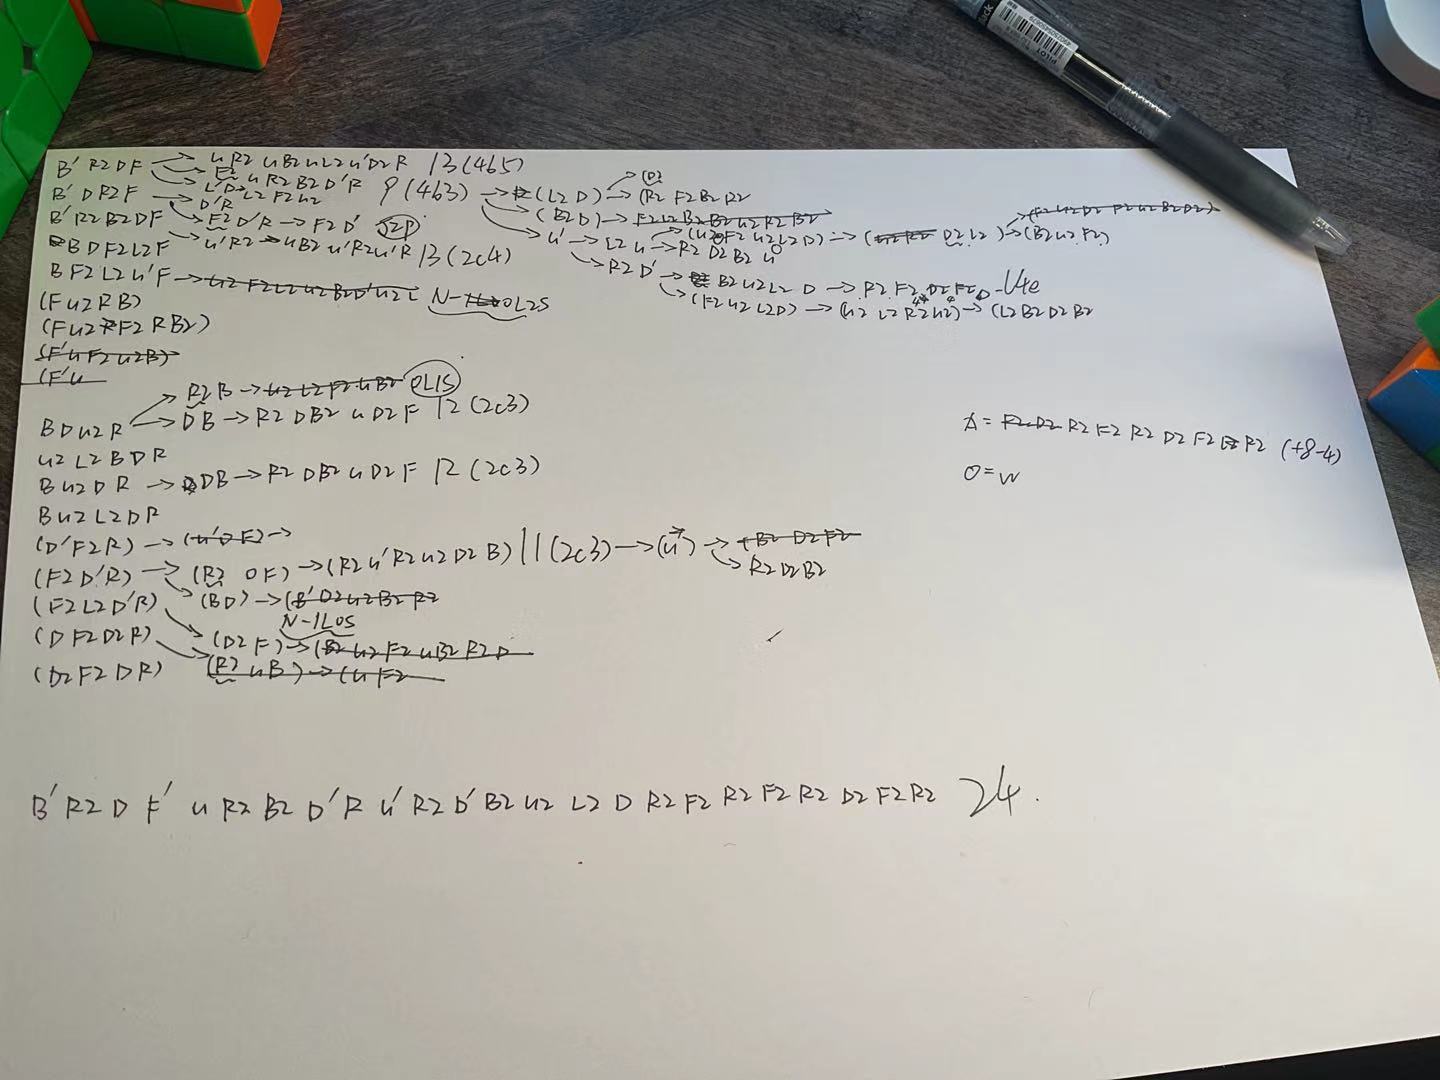 B' R2 D F → u R2 u B2 u L2 u' D2 R 13 (4b5)
F2 u R2 B2 D' R 9 (4b3) → (L2 D) → (R2 F2 B2 D2
(D2
B' D R2 F L' D → L2 F2 u2
D' R
F2 D' R → F2 D' S2P
(B2 D) → F2 L2 B2 B2 u2 R2 B2
B' R2 B2 D F → u' R2 u B2 u' R2 u' R 13 (2c4)
B D F2 L2 F
u' → L2 u → R2 D2 B2 u
D2 L2 ) → (B2 u2 F2)
→ R2 D' → B2 u2 L2 D → R2 F2 D2 F2 D -14e
B F2 L2 u' F → u2 F2 L2 u2 B2 D' u2 L
N-1 0L2S
→ (F2 u2 L2 D) → (u2 L2 R2 u2) → (L2 B2 D2 B2
(F u2 R B)
(F u2 F2 R B2)
(F' u F2 u2 B)
(F' u
R2 B → u2 L2 F2 u B2 0L1S
B D u2 R → D B → R2 D B2 u D2 F 12 (2c3)
u2 L2 B D R
B u2 D R → D B → R2 D B2 u D2 F 12 (2c3)
B u2 L2 D R
Δ = F2 D2 R2 F2 R2 D2 F2 R2 (+8-4)
O = w
(D' F2 R) → (u' D F2) →
(F2 D' R) → (R2 D F) → (R2 u' R2 u2 D2 B) 11 (2c3) → (u') → (B2 D2 F2
R2 D2 B2
(F2 L2 D' R) (B D) → (B' D2 u2 B2 R2
N-1L0S
(D F2 D2 R) (D2 F) → (B2 u2 F2 u B2 R2 D
(D2 F2 D R) (R2 u B) → (u F2
B' R2 D F' u R2 B2 D' R u' R2 D' B2 u2 L2 D R2 F2 R2 F2 R2 D2 F2 R2 24.